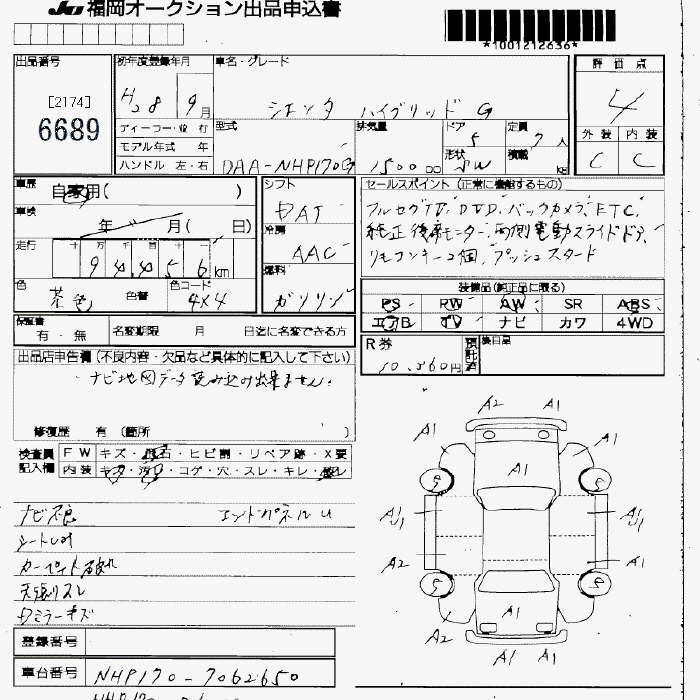 JU 福岡オークション出品申込書
*1001212636*
出品番号
[2174]
6689
初年度登録年月
H28 9月
車名・グレード
シエンタ ハイブリッド G
評価点
4
外装 内装
C C
ディーラー・並行
モデル年式 年
ハンドル 左・右
型式
DAA-NHP170G
排気量
1500 cc
ドア
5
形状
SW
定員
7人
積載
kg
車歴
自家用( )
車検
年 月( 日)
走行
十 万 千 百 十
94456 km
色
茶色
色替
色コード
4X4
シフト
DAT
冷房
AAC
燃料
ガソリン
セールスポイント (正常に機能するもの)
フルセグTV、DVD、バックカメラ、ETC
純正後席モニター、両側電動スライドドア、
リモコンキー2個、プッシュスタート
装備品(純正品に限る)
PS RW AW SR ABS
エアB TV ナビ カワ 4WD
保証書
有・無
名変期限 月 日迄に名変できる方
R券
10,360円
預託済
出品店申告欄(不良内容・欠品など具体的に記入して下さい)
ナビ地図データ読み込み出来ません。
修復歴 有 (箇所 )
検査員
記入欄
FW キズ・飛石・ヒビ割・リペア跡・X要
内装 キズ・汚れ・コゲ・穴・スレ・キレ・
ナビ不良 エンドパネルU
シート
カーペット
天張りスレ
Dミラーキズ
登録番号
車台番号 NHP170-7062650
A2 A1
A1 A1
A1
A1 U1 A1 U1
A2 A1
A1
A2 A1
A1 A1